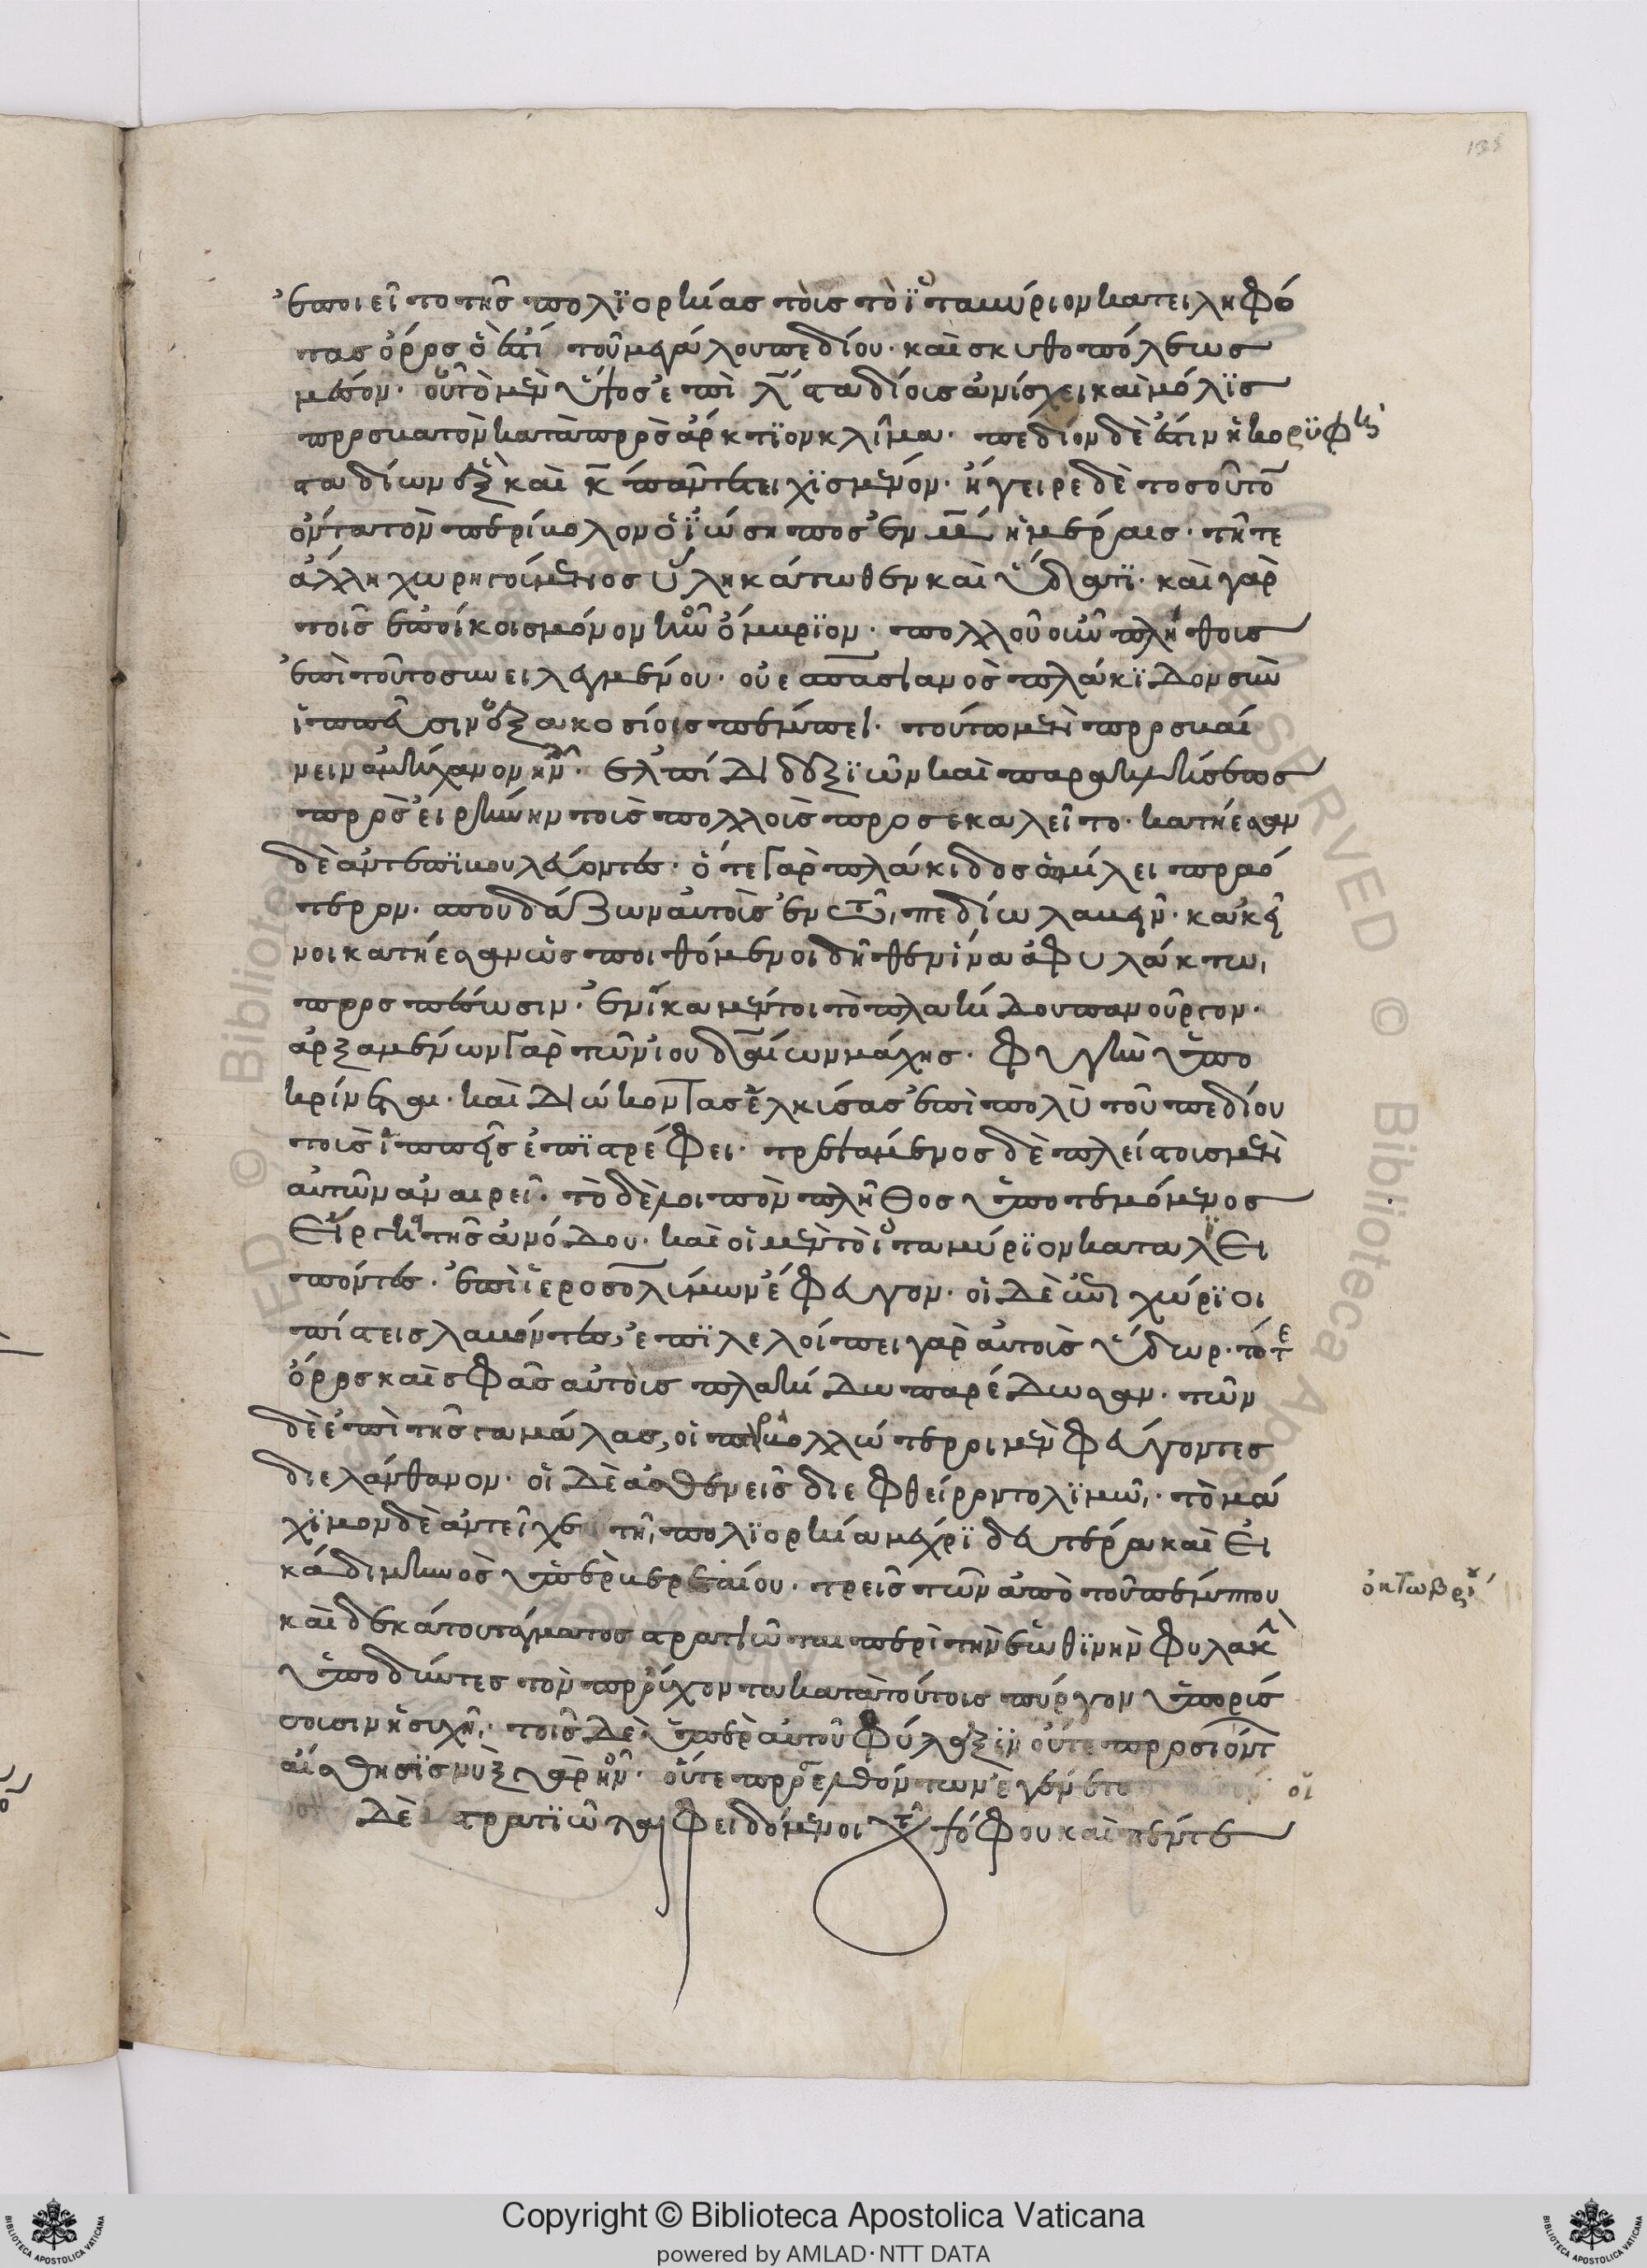 ἐποιεῖτο τῆς πολϊορκίας τοὺς τὸ ϊταβύριον κατειληφό
τας ὄρος ὅ ἐστι τοῦ μεγάλου πεδίου· καὶ σκυθοπόλεως
μέσον· οὗ τὸ μὲν ὕψος ἐπὶ λ̅ σταδίους ἀνίσχει καὶ μόλϊς
προσβατὸν κατὰ προσάρκτϊον κλῖμα· πεδίον δὲ ἐστιν ἡ κορϋφὴ
σταδίων ἓξ καὶ κ̅ πᾶν τετειχϊσμένον· ἤγειρε δὲ τοσοῦτο
ὄντα τὸν περίβολον ὁ ϊώσηπος ἐν μ̅ ἡμέραις· τῆ τε
ἄλλη χωρηγούμενος ὕλη κάτωθεν καὶ ὕδατϊ· καὶ γὰρ
τοῖς ἐποίκοις μόνον ἦν ὄμβρϊον· πολλοῦ οὖν πλήθους
ἐπὶ τοῦτο συνειλεγμένου· οὐεσπασιανὸς πλάκϊδον σὺν
ἱππεῦσιν ἑξακοσίοις πέμπει· τούτω μὲν προσβαί
νειν ἀμήχανον ἦν· ἐλπίδι δεξϊῶν καὶ παρακλήσεως
πρὸς εἰρήνην τοὺς πολλοὺς προσεκαλεῖτο· κατήεσαν
δὲ ἀντεπϊβουλεύοντες· ὅ τε γὰρ πλάκιδος ὁμίλει πραό
τερον· σπουδάζων αὐτοὺς ἐν τῶ πεδίω λαβεῖν· κακεῖ
νοι κατήεσαν ὡς πειθόμενοι δῆθεν ἵνα ἀφυλάκτω
προσπέσωσιν· ἐνίκα μέντοι τὸ πλακίδου πανοῦργον·
ἀρξαμένων γὰρ τῶν ἰουδαίων μάχης· φυγὴν ὑπο
κρίνεται· καὶ διώκοντας ἑλκύσας ἐπὶ πολὺ τοῦ πεδίου
τοὺς ἱππεῖς ἐπϊστρέφει· τρεψάμενος δὲ πλείστους μὲν
αὐτῶν ἀναιρεῖ· τὸ δὲ λοιπὸν πλῆθος ὑποτεμόμενος
εἶρξε τῆς ἀνόδου· καὶ οἱ μὲν τὸ ἰταβύρϊον καταλϊ
πόντες· ἐπὶ ἱεροσολύμων ἔφευγον· οἱ δὲ ἐπιχώρϊοι
πίστεις λαβόντες, ἐπϊλελοίπει γὰρ αὐτοὺς ὕδωρ· τό τε
ὄρος καὶ σφᾶς αὐτοὺς πλακίδω παρέδωσαν· τῶν
δὲ ἐπὶ τῆς γαμάλας, οἱ παραβολλώτεροι μὲν φεύγοντες
διελάνθανον· οἱ δὲ ἀσθενεῖς διεφθείροντο λϊμῶ· τὸ μά
χϊμον δὲ ἀντεῖχε τῆ πολϊορκία μέχρϊ δευτέρα καὶ εἰ
κάδι μηνὸς ὑπερβερεταίου· τρεῖς τῶν ἀπὸ τοῦ πέμπτου
ὀκτωβρΐ
καὶ δεκάτου τάγματος στρατιῶται περὶ τὴν ἑωθϊνὴν φυλακὴ
ὑποδύντες τὸν προὔχοντα κατὰ τούτους πύργον ὑπορύσ
σουσιν ἡσυχῆ· τοῖς δὲ ὑπὲρ αὐτοῦ φύλαξϊν οὔτε προσιόντ
αἴσθησϊς νὺξ γὰρ ἦν· οὔτε προσελθόντων ἐγένετο οἱ
δὲ στρατϊῶται φειδόμενοι τοῦ ψόφου καὶ πέντε